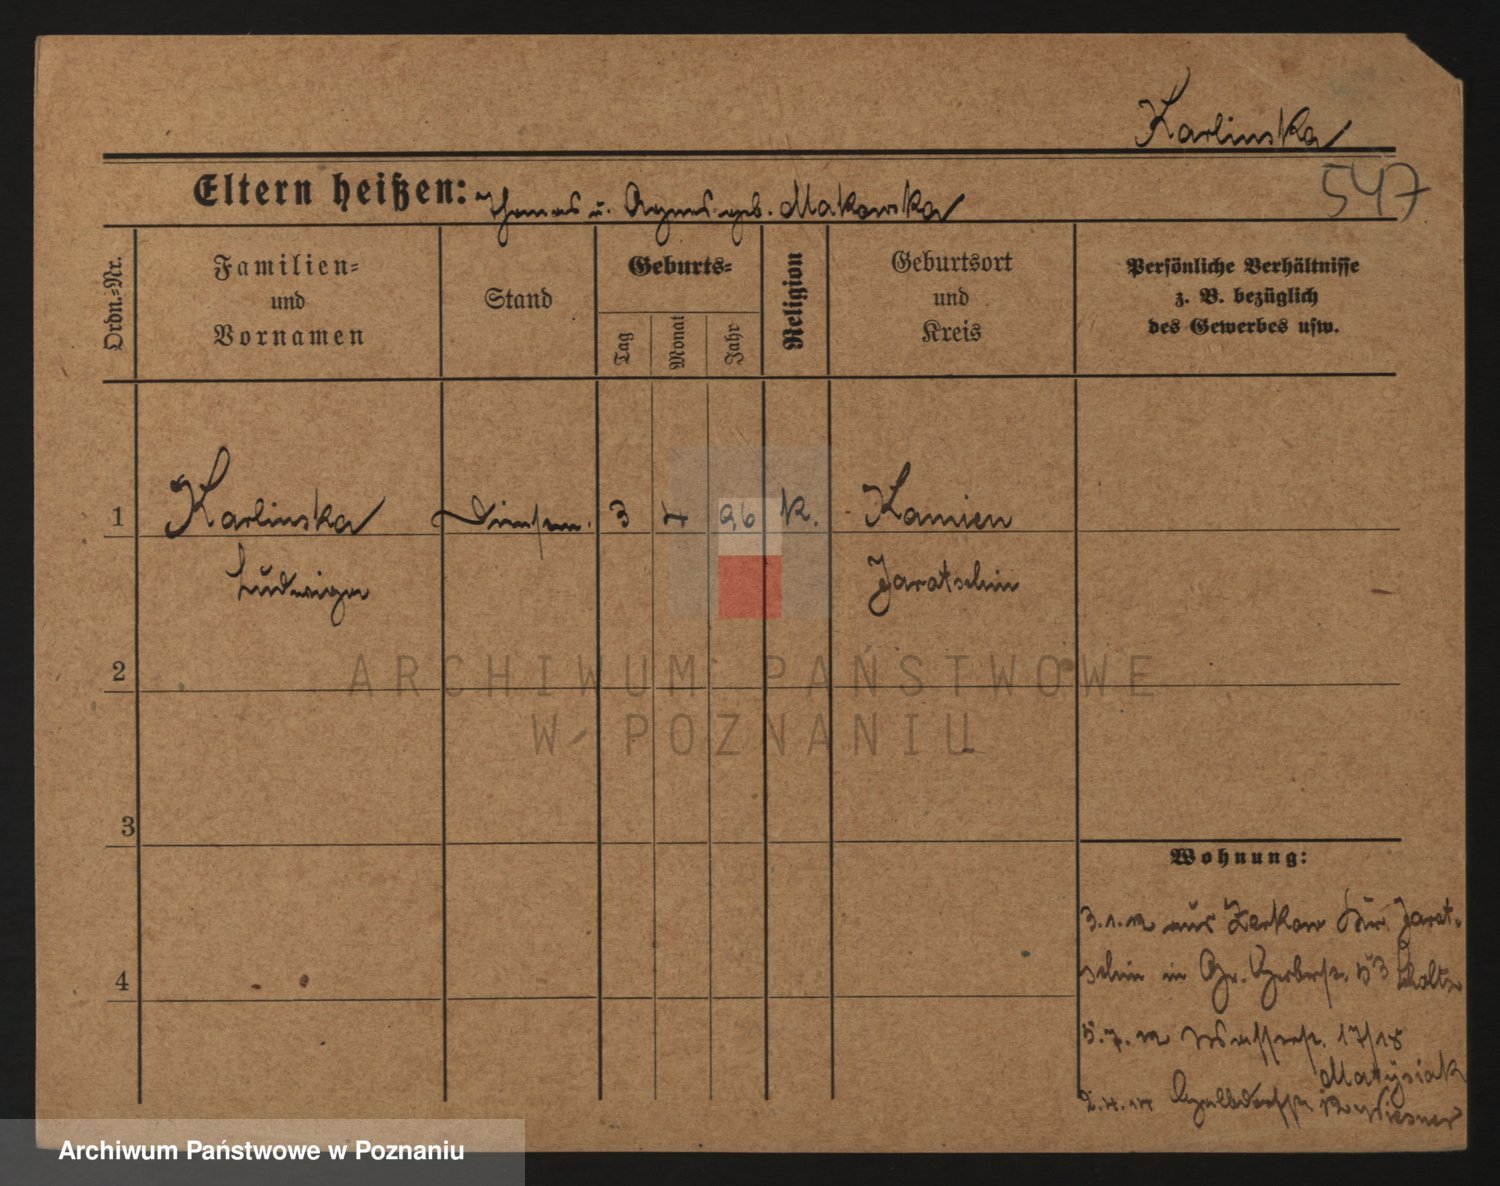 Karlinska
547
Eltern heißen: Thomas u. Agnes geb. Makowska
Ordn.=Nr.
Familien=
und
Vornamen
Stand
Geburts=
Tag
Monat
Jahr
Religion
Geburtsort
und
Kreis
Persönliche Verhältnisse
z. B. bezüglich
des Gewerbes usw.
1
Karlinska
Ludwiga
Dienstm.
3
4
96
K.
Kamien
Jaratschin
2
3
4
Wohnung:
3.1.12 aus Zerkow Kr. Jarat-
schin in Gr. Gerberstr. 53
5.7.12 Wasserstr. 17/18
Matysiak
2.4.14 Wiesner
ARCHIWUM PAŃSTWOWE
W POZNANIU
Archiwum Państwowe w Poznaniu